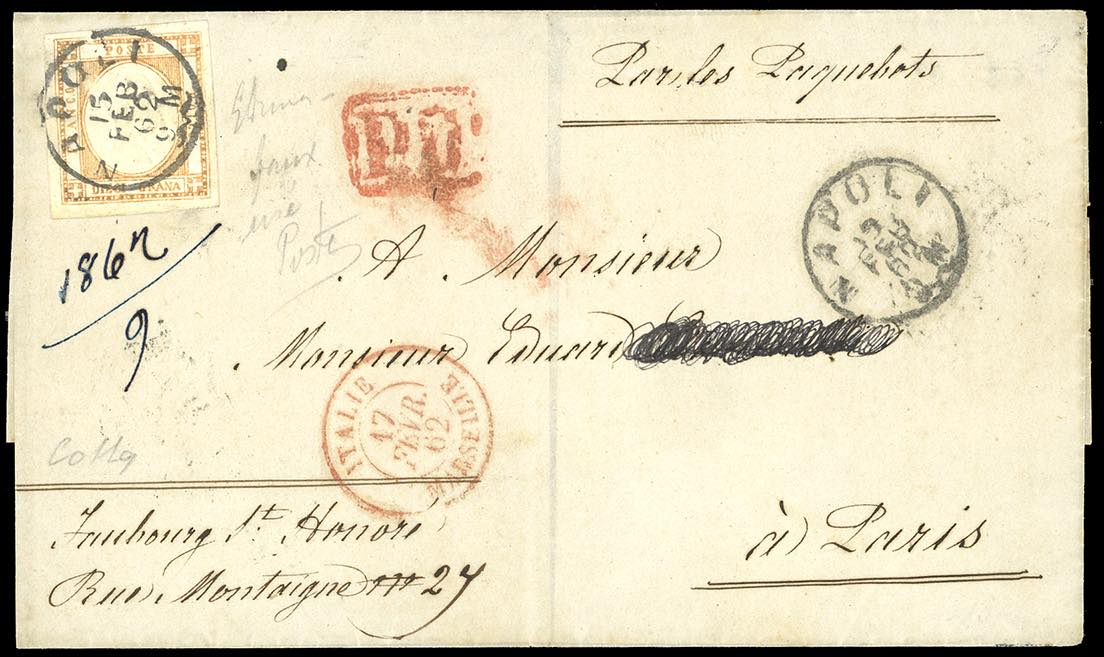 POSTE
DIECI GRANA
NAPOLI
15
FEB
62
9 M
Par les Paquebots
P.D.
faux
Poste
NAPOLI
FEB
62
1862
9
A Monsieur
Monsieur Eduard
ITALIE
17
FEVR.
62
MARSEILLE
Faubourg St. Honoré
Rue Montaigne nº 27
à Paris